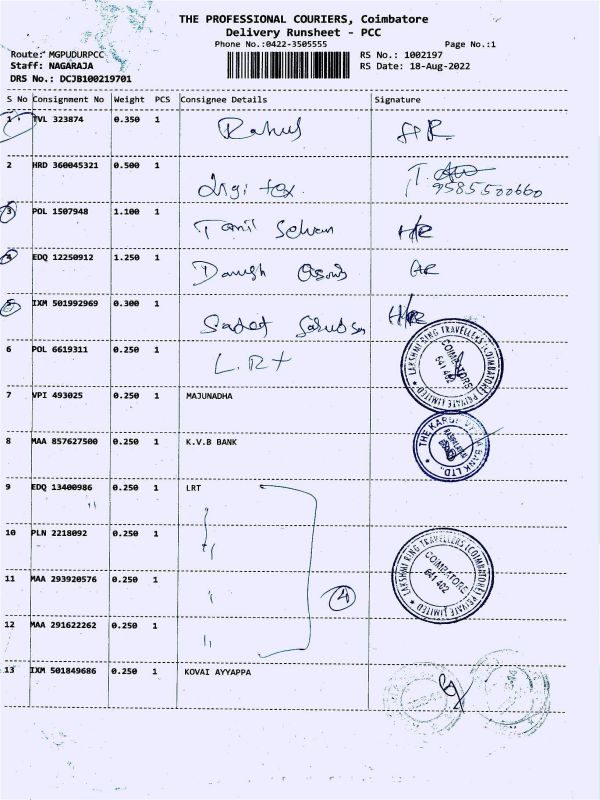 THE PROFESSIONAL COURIERS, Coimbatore
Delivery Runsheet - PCC
Phone No.:0422-3505555
Page No.:1
Route: MGPUDURPCC
RS No.: 1002197
Staff: NAGARAJA
RS Date: 18-Aug-2022
DRS No.: DCJB100219701
S No Consignment No Weight PCS Consignee Details Signature
1 TVL 323874 0.350 1 Rahul
2 HRD 360045321 0.500 1 Digi tex. T.
9585500660
3 POL 1507948 1.100 1 Tamil Selvan
4 EDQ 12250912 1.250 1
5 IXM 501992969 0.300 1
6 POL 6619311 0.250 1 L.R.t
LAKSHMI RING TRAVELLERS (COIMBATORE) PRIVATE LIMITED
COIMBATORE
641 402
7 VPI 493025 0.250 1 MAJUNADHA
8 MAA 857627500 0.250 1 K.V.B BANK
THE KARUR VYSYA BANK LTD.
9 EDQ 13400986 0.250 1 LRT
10 PLN 2218092 0.250 1
11 MAA 293920576 0.250 1
LAKSHMI RING TRAVELLERS (COIMBATORE) PRIVATE LIMITED
COIMBATORE
641 402
4
12 MAA 291622262 0.250 1
13 IXM 501849686 0.250 1 KOVAI AYYAPPA